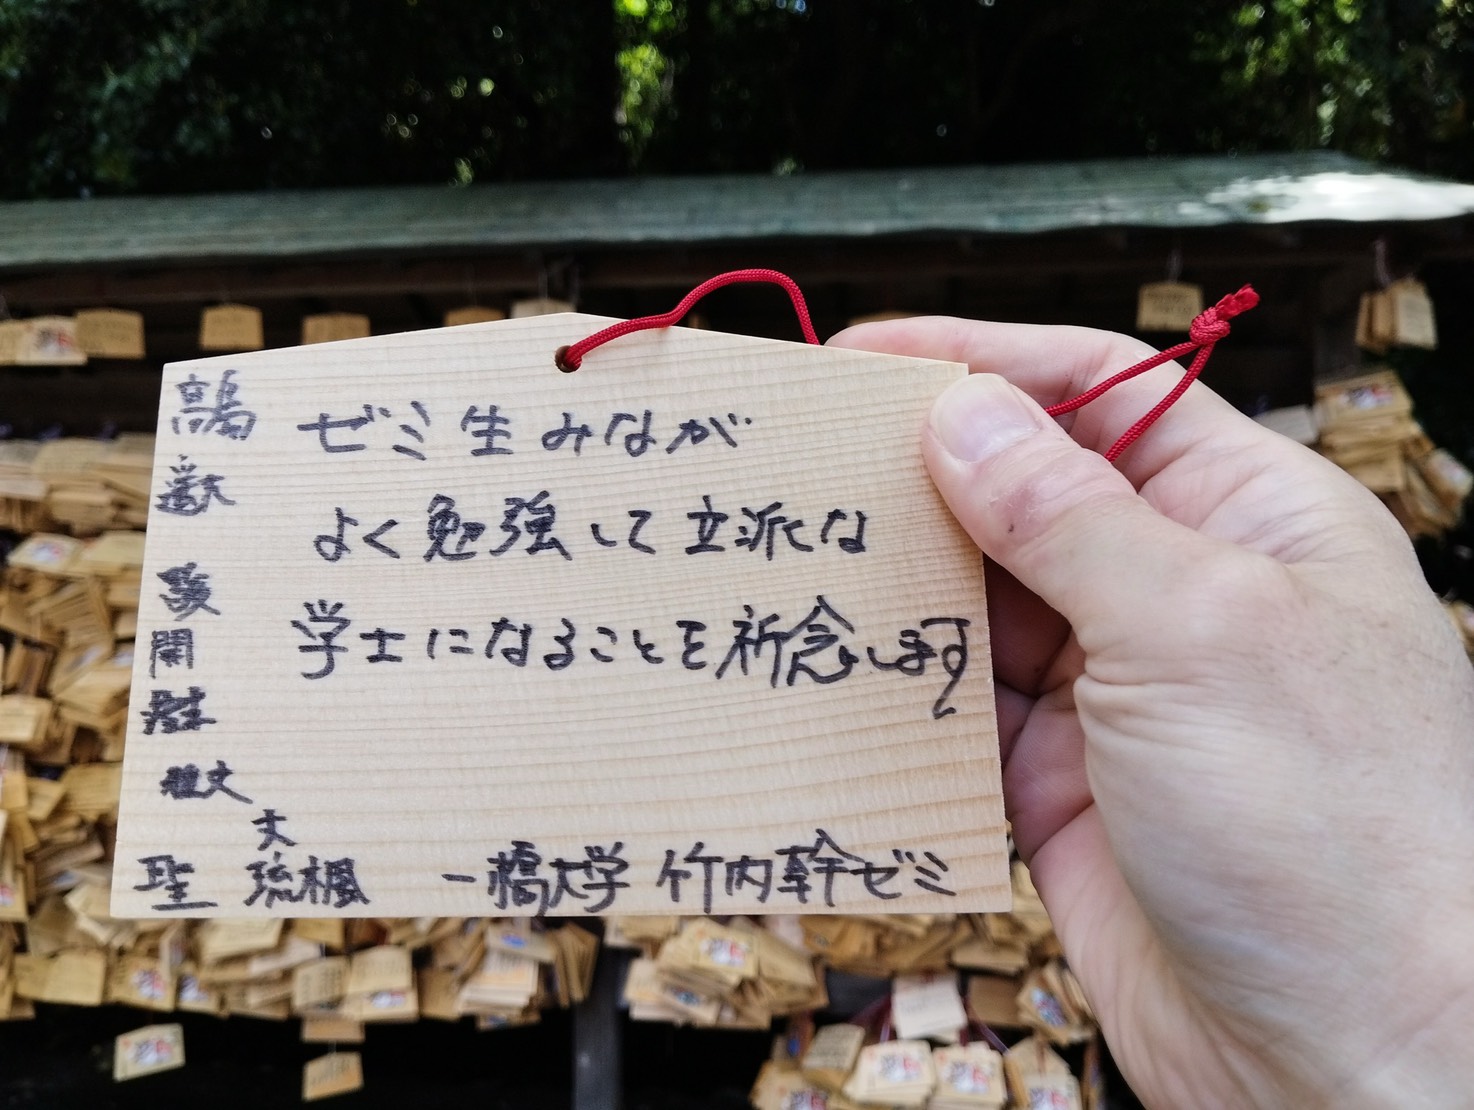 ゼミ生みなが
よく勉強して立派な
学士になることを祈念します
開
雄文
聖
琉楓
一橋大学 竹内幹ゼミ